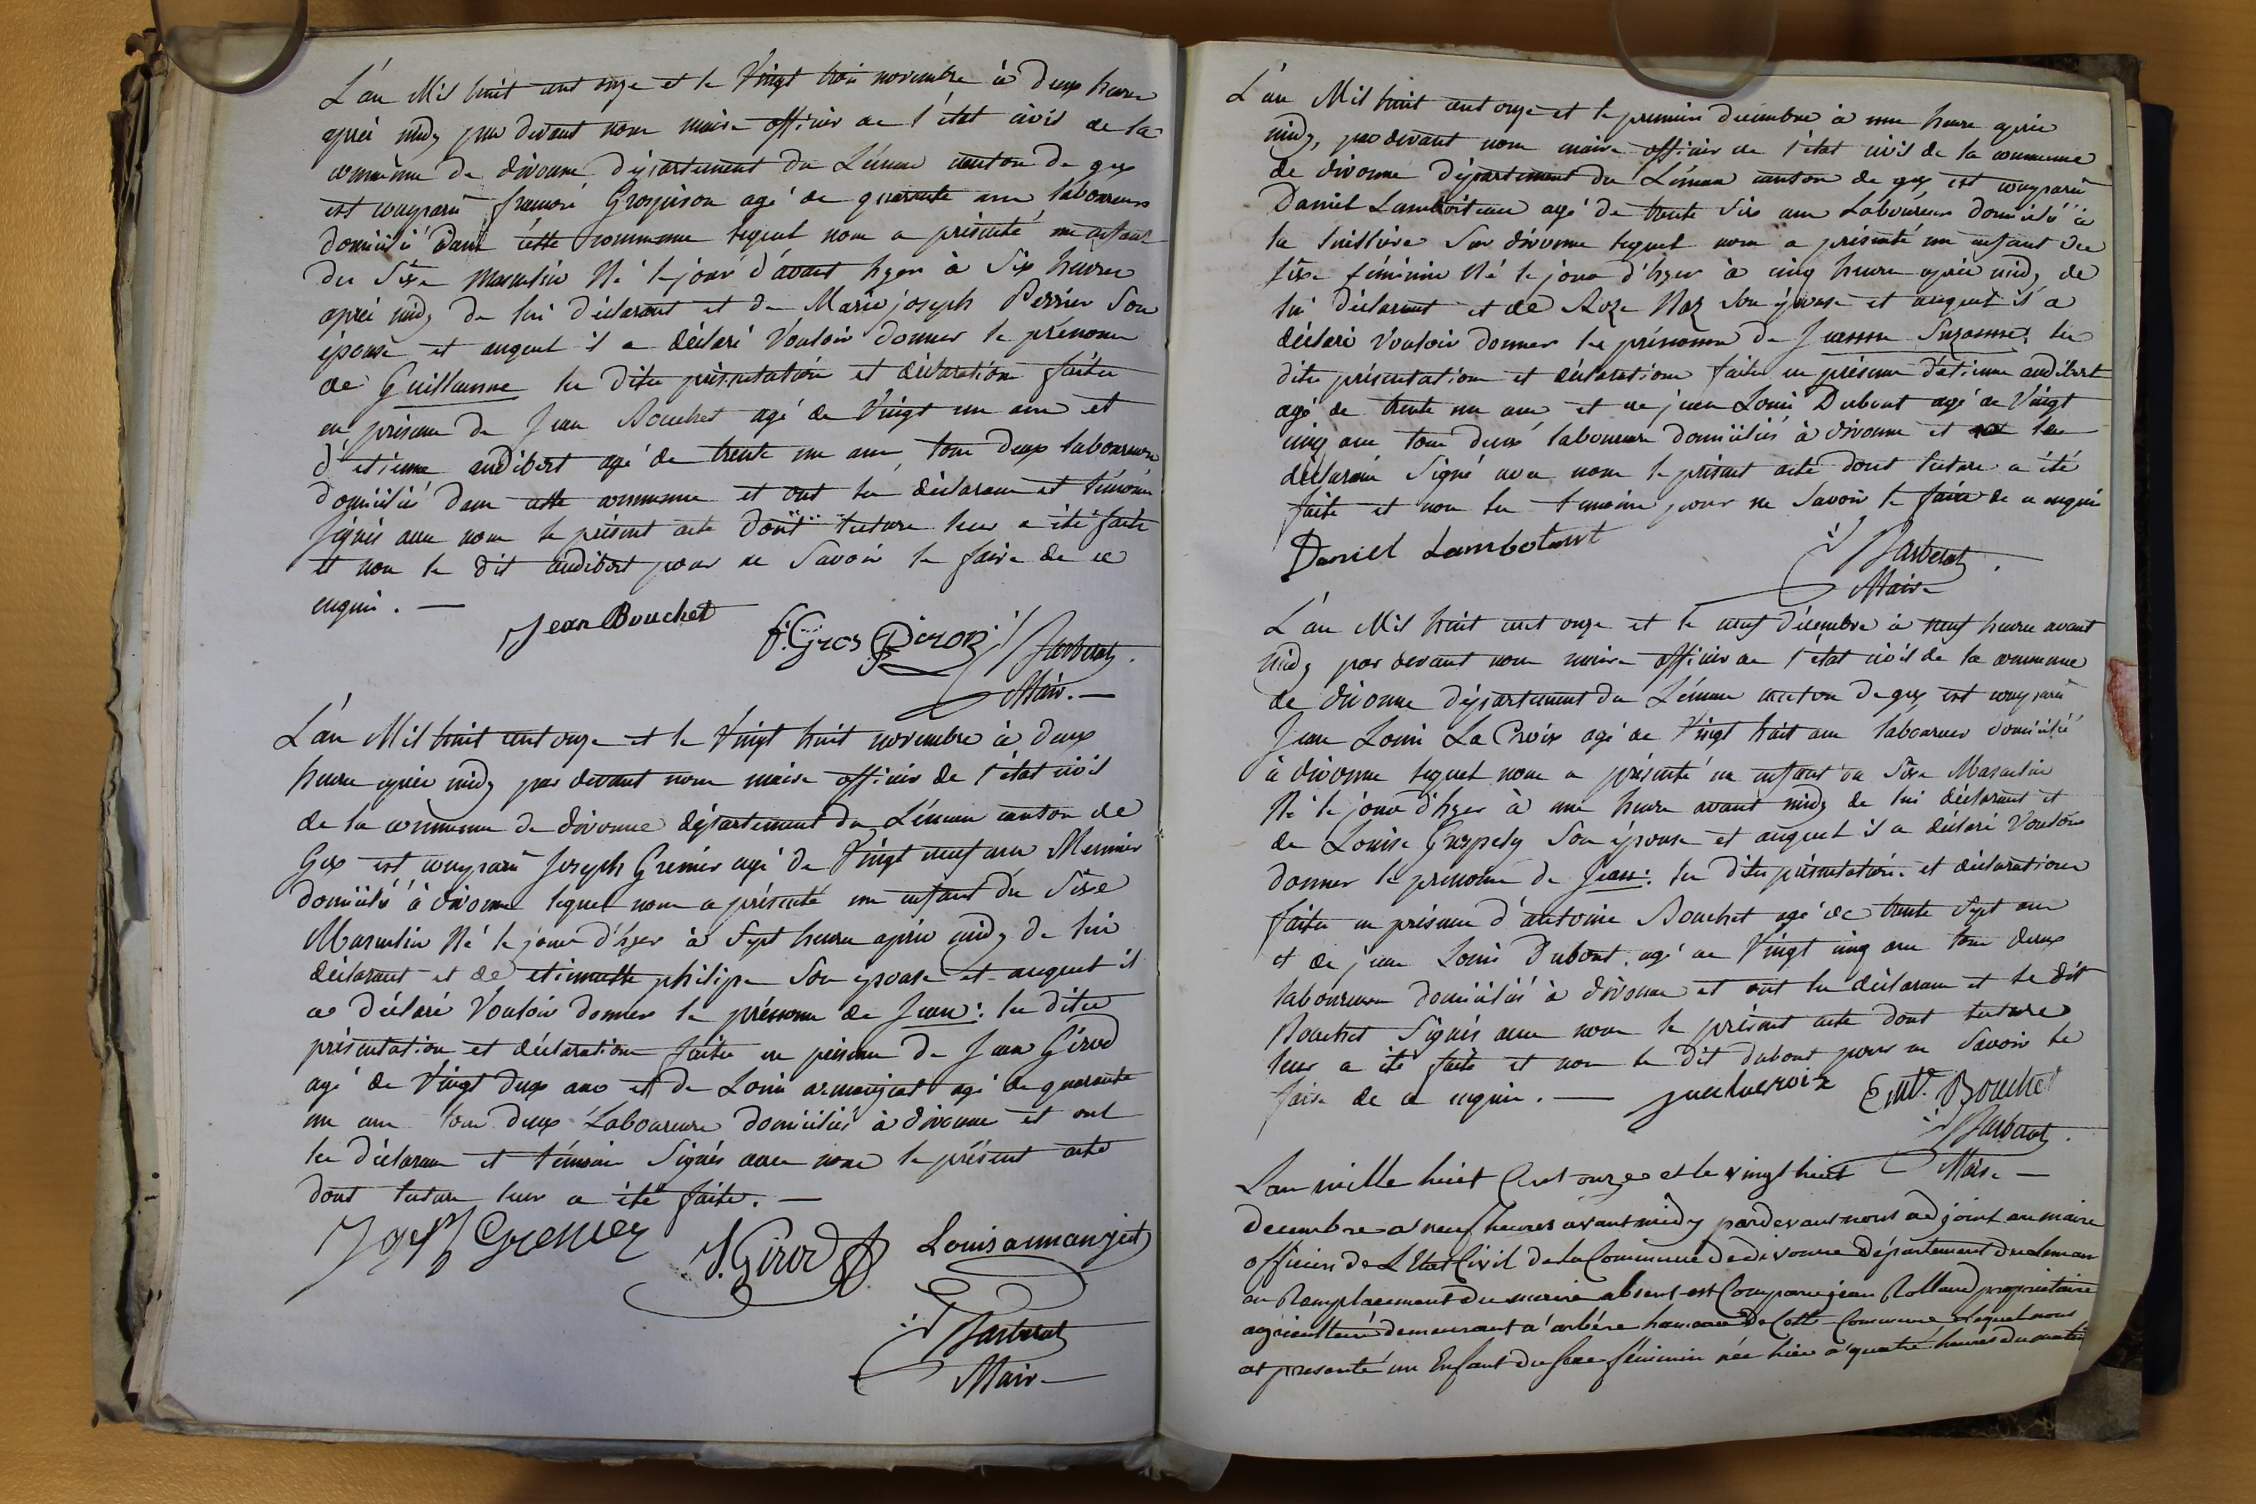 L'an Mil huit cent onze et le Vingt trois novembre à deux heures
après midy par devant nous maire officier de l'état civil de la
commune de divonne département du Léman canton de gex
est comparû francois Grosjoison agé de quarante ans laboureur
domicilié dans cette commune lequel nous a présenté un enfant
du Sèxe Masculin Né le jour d'avant hyer à Six heures
après midy de lui déclarant et de Marie joseph Perrier Son
épouse et auquel il a déclaré Vouloir donner le prénom
de Guillaume les dites présentation et déclaration faites
en présence de Jean Bouchet agé de Vingt un ans et
d'etienne audibert agé de trente un ans, tous deux laboureurs
domiciliés dans cette commune et ont les déclarant et témoins
Signés avec nous le présent acte dont lecture leur a été faite
et non le dit audibert pour ne Savoir le faire de ce
enquis. —
Jean Bouchet
Barberat
Maire
L'an Mil huit cent onze et le Vingt huit novembre à deux
heures après midy par devant nous maire officier de l'état civil
de la commune de divonne département du Léman canton de
Gex est comparû Joseph Grenier agé de Vingt neuf ans Meunier
domicilié à divonne lequel nous a présenté un enfant du Sèxe
Masculin Né le jour d'hyer à Sept heures après midy de lui
déclarant et de etiennette philipe Son epouse et auquel il
a déclaré Vouloir donner le prénom de Jean: les dites
présentation et déclaration faites en présence de Jean Girod
agé de Vingt deux ans et de Louis armanjeat agé de quarante
un ans tous deux Laboureurs domiciliés à divonne et ont
les déclarant et témoins Signés avec nous le présent acte
dont lecture leur a été faite. —
Joseph Grenier
J. Girod
Louis armanjat
Barberat
Maire
L'an Mil huit cent onze et le premier décembre à une heure après
midy, par devant nous maire officier de l'état civil de la commune
de divonne département du Léman canton de gex est comparû
Daniel Lamboiteau agé de trente Six ans Laboureur domicilié à
la Sur divonne lequel nous a présenté un enfant du
Sèxe féminin Né le jour d'hyer à cinq heures après midy de
lui déclarant et de Roze Naz Son épouse et auquel il a
déclaré Vouloir donner les prénoms de Jeanne Suzanne; les
dites présentation et déclaration faites en présence d'étienne audibert
agé de trente un ans et de jean Louis Dubout agé de Vingt
cinq ans tous deux laboureurs domiciliés à divonne et le
déclarant Signé avec nous le présent acte dont lecture a été
faite et non les témoins pour ne Savoir le faire de ce enquis
Daniel Lambotant
Barberat
Maire
L'an Mil huit cent onze et le neuf décembre à neuf heures avant
midy par devant nous maire officier de l'état civil de la commune
de divonne département du Léman canton de gex est comparû
Jean Louis La Croix agé de Vingt huit ans laboureur domicilié
à divonne lequel nous a présenté un enfant du Sèxe Masculin
Né le jour d'hyer à une heure avant midy de lui déclarant et
de Louise Grospely Son épouse et auquel il a déclaré Vouloir
donner le prénom de Jean: les dites présentation et déclaration
faites en présence d'antoine Bouchet agé de trente Sept ans
et de jean Louis Dubout agé de Vingt cinq ans tous deux
laboureurs domiciliés à divonne et ont les déclarant et le dit
Bouchet Signés avec nous le présent acte dont lecture
leur a été faite et non le dit dubout pour ne Savoir le
faire de ce enquis. —
Bouchet
Barberat
Maire
Lan mille huit Cent onze et le vingt huit
decembre a neuf heures avant midy pardevant nous adjoint au maire
officier de L'Etat Civil de la Commune de divonne département du leman
en Remplacement du maire absent est Comparu jean Rolland proprietaire
agriculteur demeurant a arbére hameau de Cette Commune lequel nous
at presenté un Enfant du sexe féminin née hier a quatre heures du matin